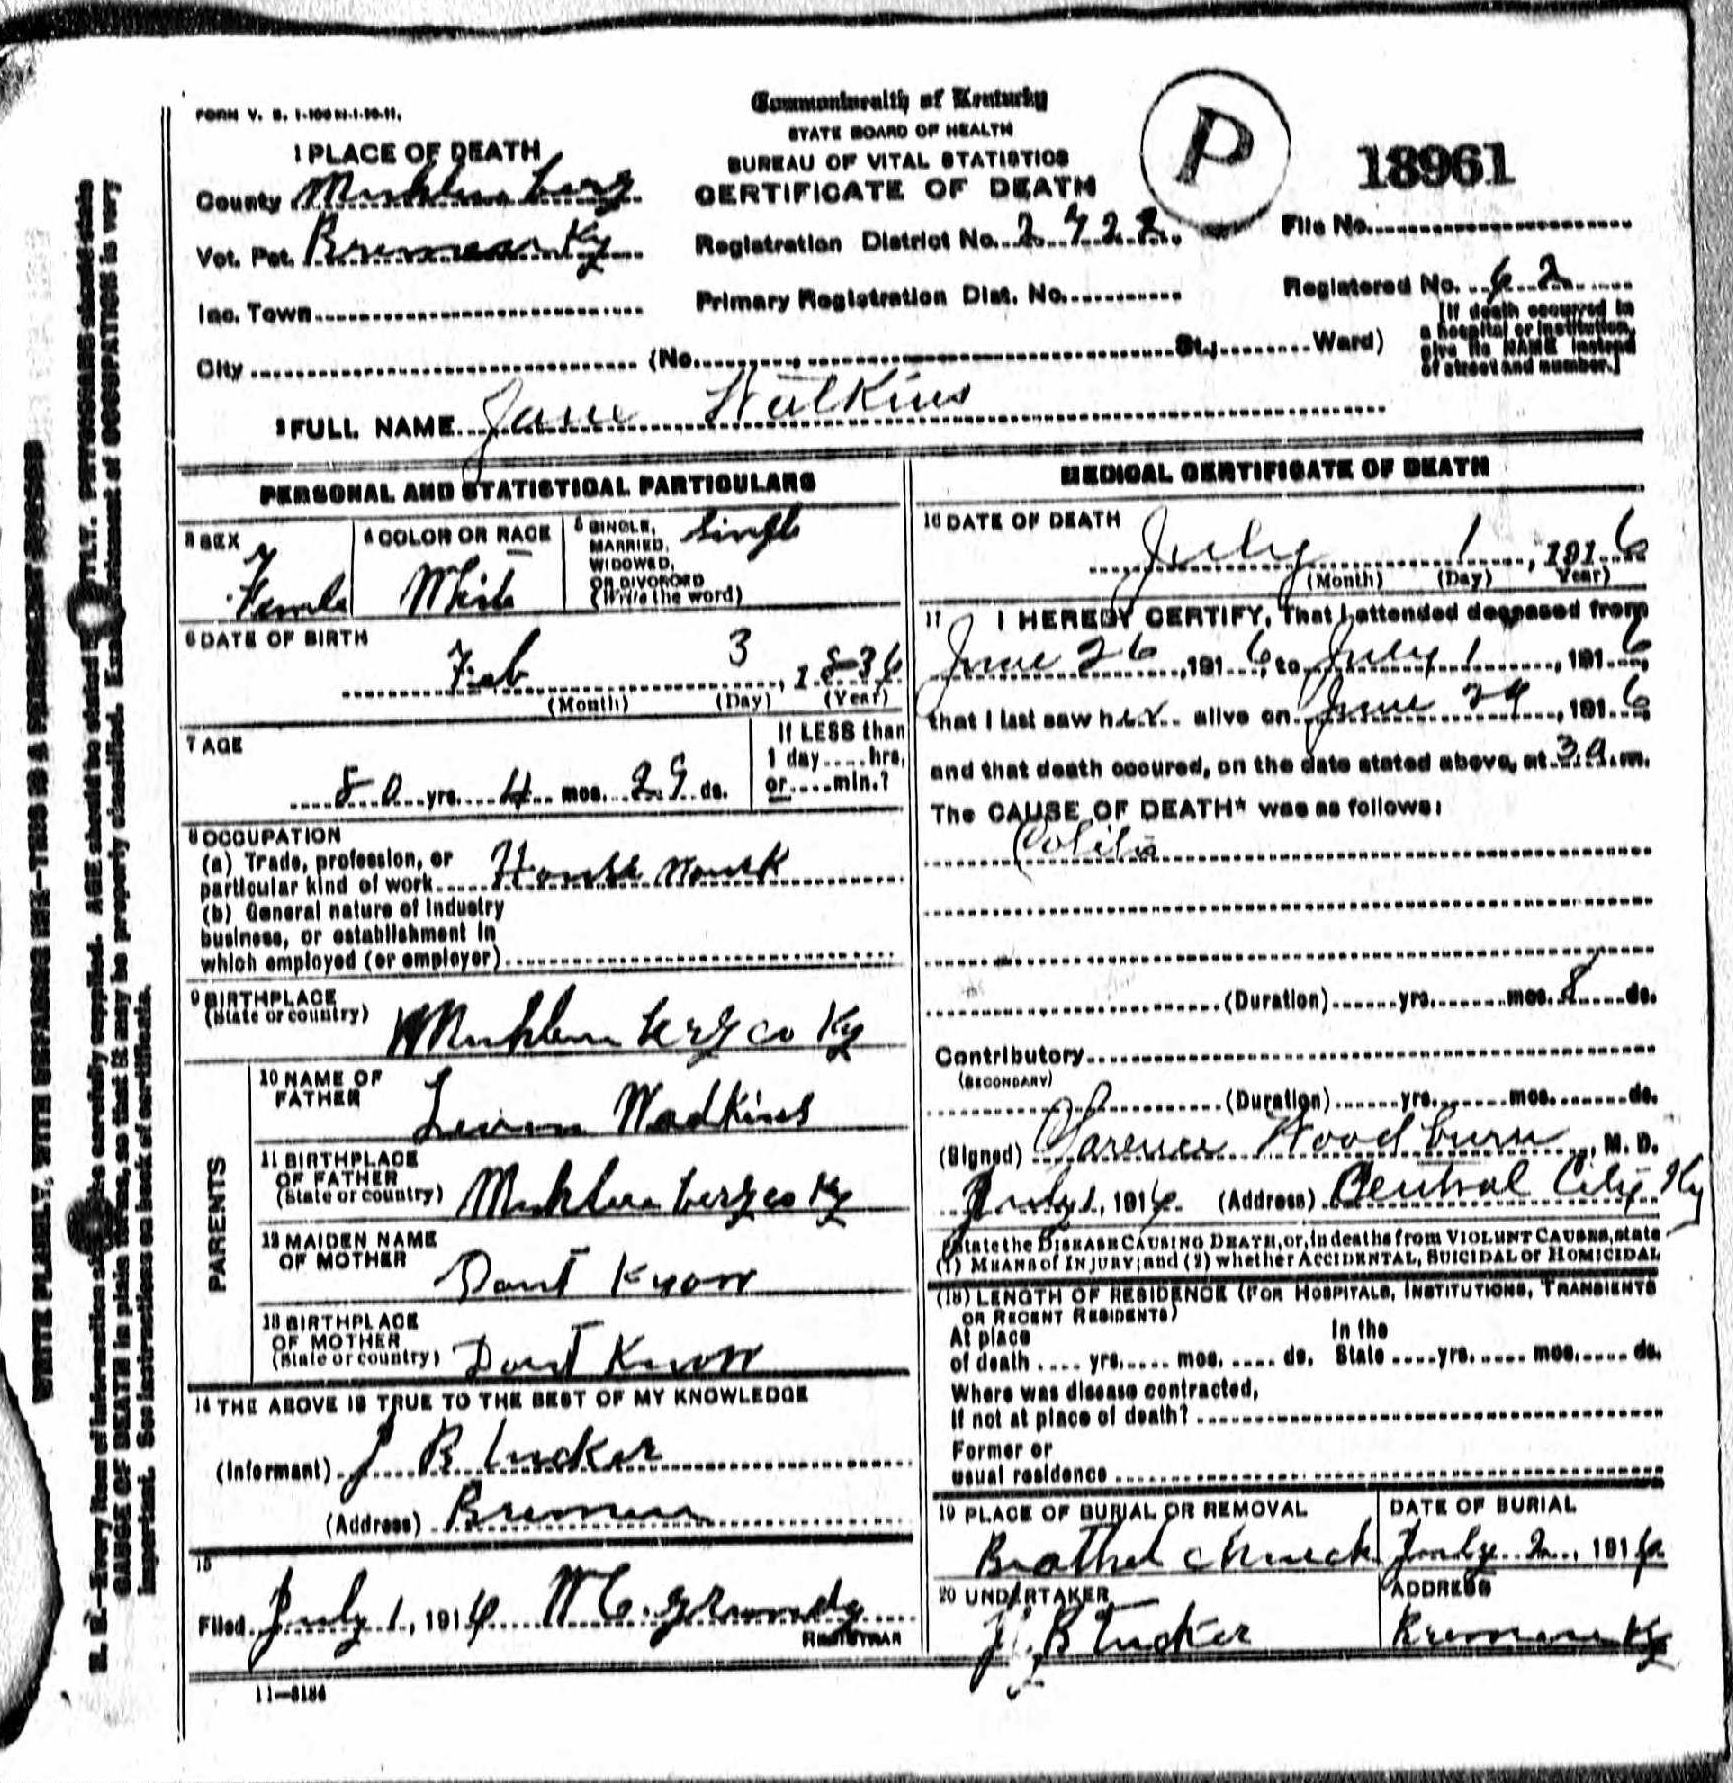 FORM V. S. 1-100 M-1-10-11.
Commonwealth of Kentucky
STATE BOARD OF HEALTH
BUREAU OF VITAL STATISTICS
CERTIFICATE OF DEATH
P
18961
1 PLACE OF DEATH
County Muhlenberg
Vot. Pct. Bremen Ky
Registration District No.
File No.
Inc. Town
Primary Registration Dist. No.
Registered No. 62
City (No. St.; Ward)
[If death occurred in
a hospital or institution,
give its NAME instead
of street and number.]
2 FULL NAME Jane Watkins
PERSONAL AND STATISTICAL PARTICULARS
3 SEX
Female
4 COLOR OR RACE
White
5 SINGLE,
MARRIED,
WIDOWED,
OR DIVORCED
(Write the word)
Single
6 DATE OF BIRTH
Feb 3, 1836
(Month) (Day) (Year)
7 AGE
80 yrs. 4 mos. 29 ds.
If LESS than
1 day....hrs,
or....min.?
8 OCCUPATION
(a) Trade, profession, or
particular kind of work House Work
(b) General nature of Industry
business, or establishment in
which employed (or employer)
9 BIRTHPLACE
(State or country)
Muhlenberg co Ky
PARENTS
10 NAME OF
FATHER
Wadkins
11 BIRTHPLACE
OF FATHER
(State or country)
Muhlenberg co Ky
12 MAIDEN NAME
OF MOTHER
Dont Know
13 BIRTHPLACE
OF MOTHER
(State or country)
Dont Know
14 THE ABOVE IS TRUE TO THE BEST OF MY KNOWLEDGE
(Informant) J B Tucker
(Address) Bremen
15
Filed July 1, 1916 M C. Grundy
REGISTRAR
11-3184
MEDICAL CERTIFICATE OF DEATH
16 DATE OF DEATH
July 1, 1916
(Month) (Day) Year)
17 I HEREBY CERTIFY, That I attended deceased from
June 26, 1916, to July 1, 1916,
that I last saw her alive on June 29, 1916,
and that death occured, on the date stated above, at 3 a.m.
The CAUSE OF DEATH* was as follows:
Colitis
(Duration) yrs. mos. 8 ds.
Contributory
(SECONDARY)
(Duration) yrs. mos. ds.
(Signed) Clarence Woodburn, M. D.
July 1, 1916 (Address) Central City Ky
*State the DISEASE CAUSING DEATH, or, in deaths from VIOLENT CAUSES, state
(1) MEANS of INJURY; and (2) whether ACCIDENTAL, SUICIDAL or HOMICIDAL
(18) LENGTH OF RESIDENCE (FOR HOSPITALS, INSTITUTIONS, TRANSIENTS
OR RECENT RESIDENTS)
At place
of death .... yrs..... mos. .... ds.
In the
State ....yrs..... mos..... ds.
Where was disease contracted,
If not at place of death?
Former or
usual residence
19 PLACE OF BURIAL OR REMOVAL
Church
DATE OF BURIAL
July 2, 1916
20 UNDERTAKER
J. B Tucker
ADDRESS
Bremen Ky
WRITE PLAINLY, WITH UNFADING INK—THIS IS A PERMANENT RECORD
N. B.—Every item of information should be carefully supplied. AGE should be stated EXACTLY. PHYSICIANS should state
CAUSE OF DEATH in plain terms, so that it may be properly classified. Exact statement of OCCUPATION is very
important. See instructions on back of certificate.